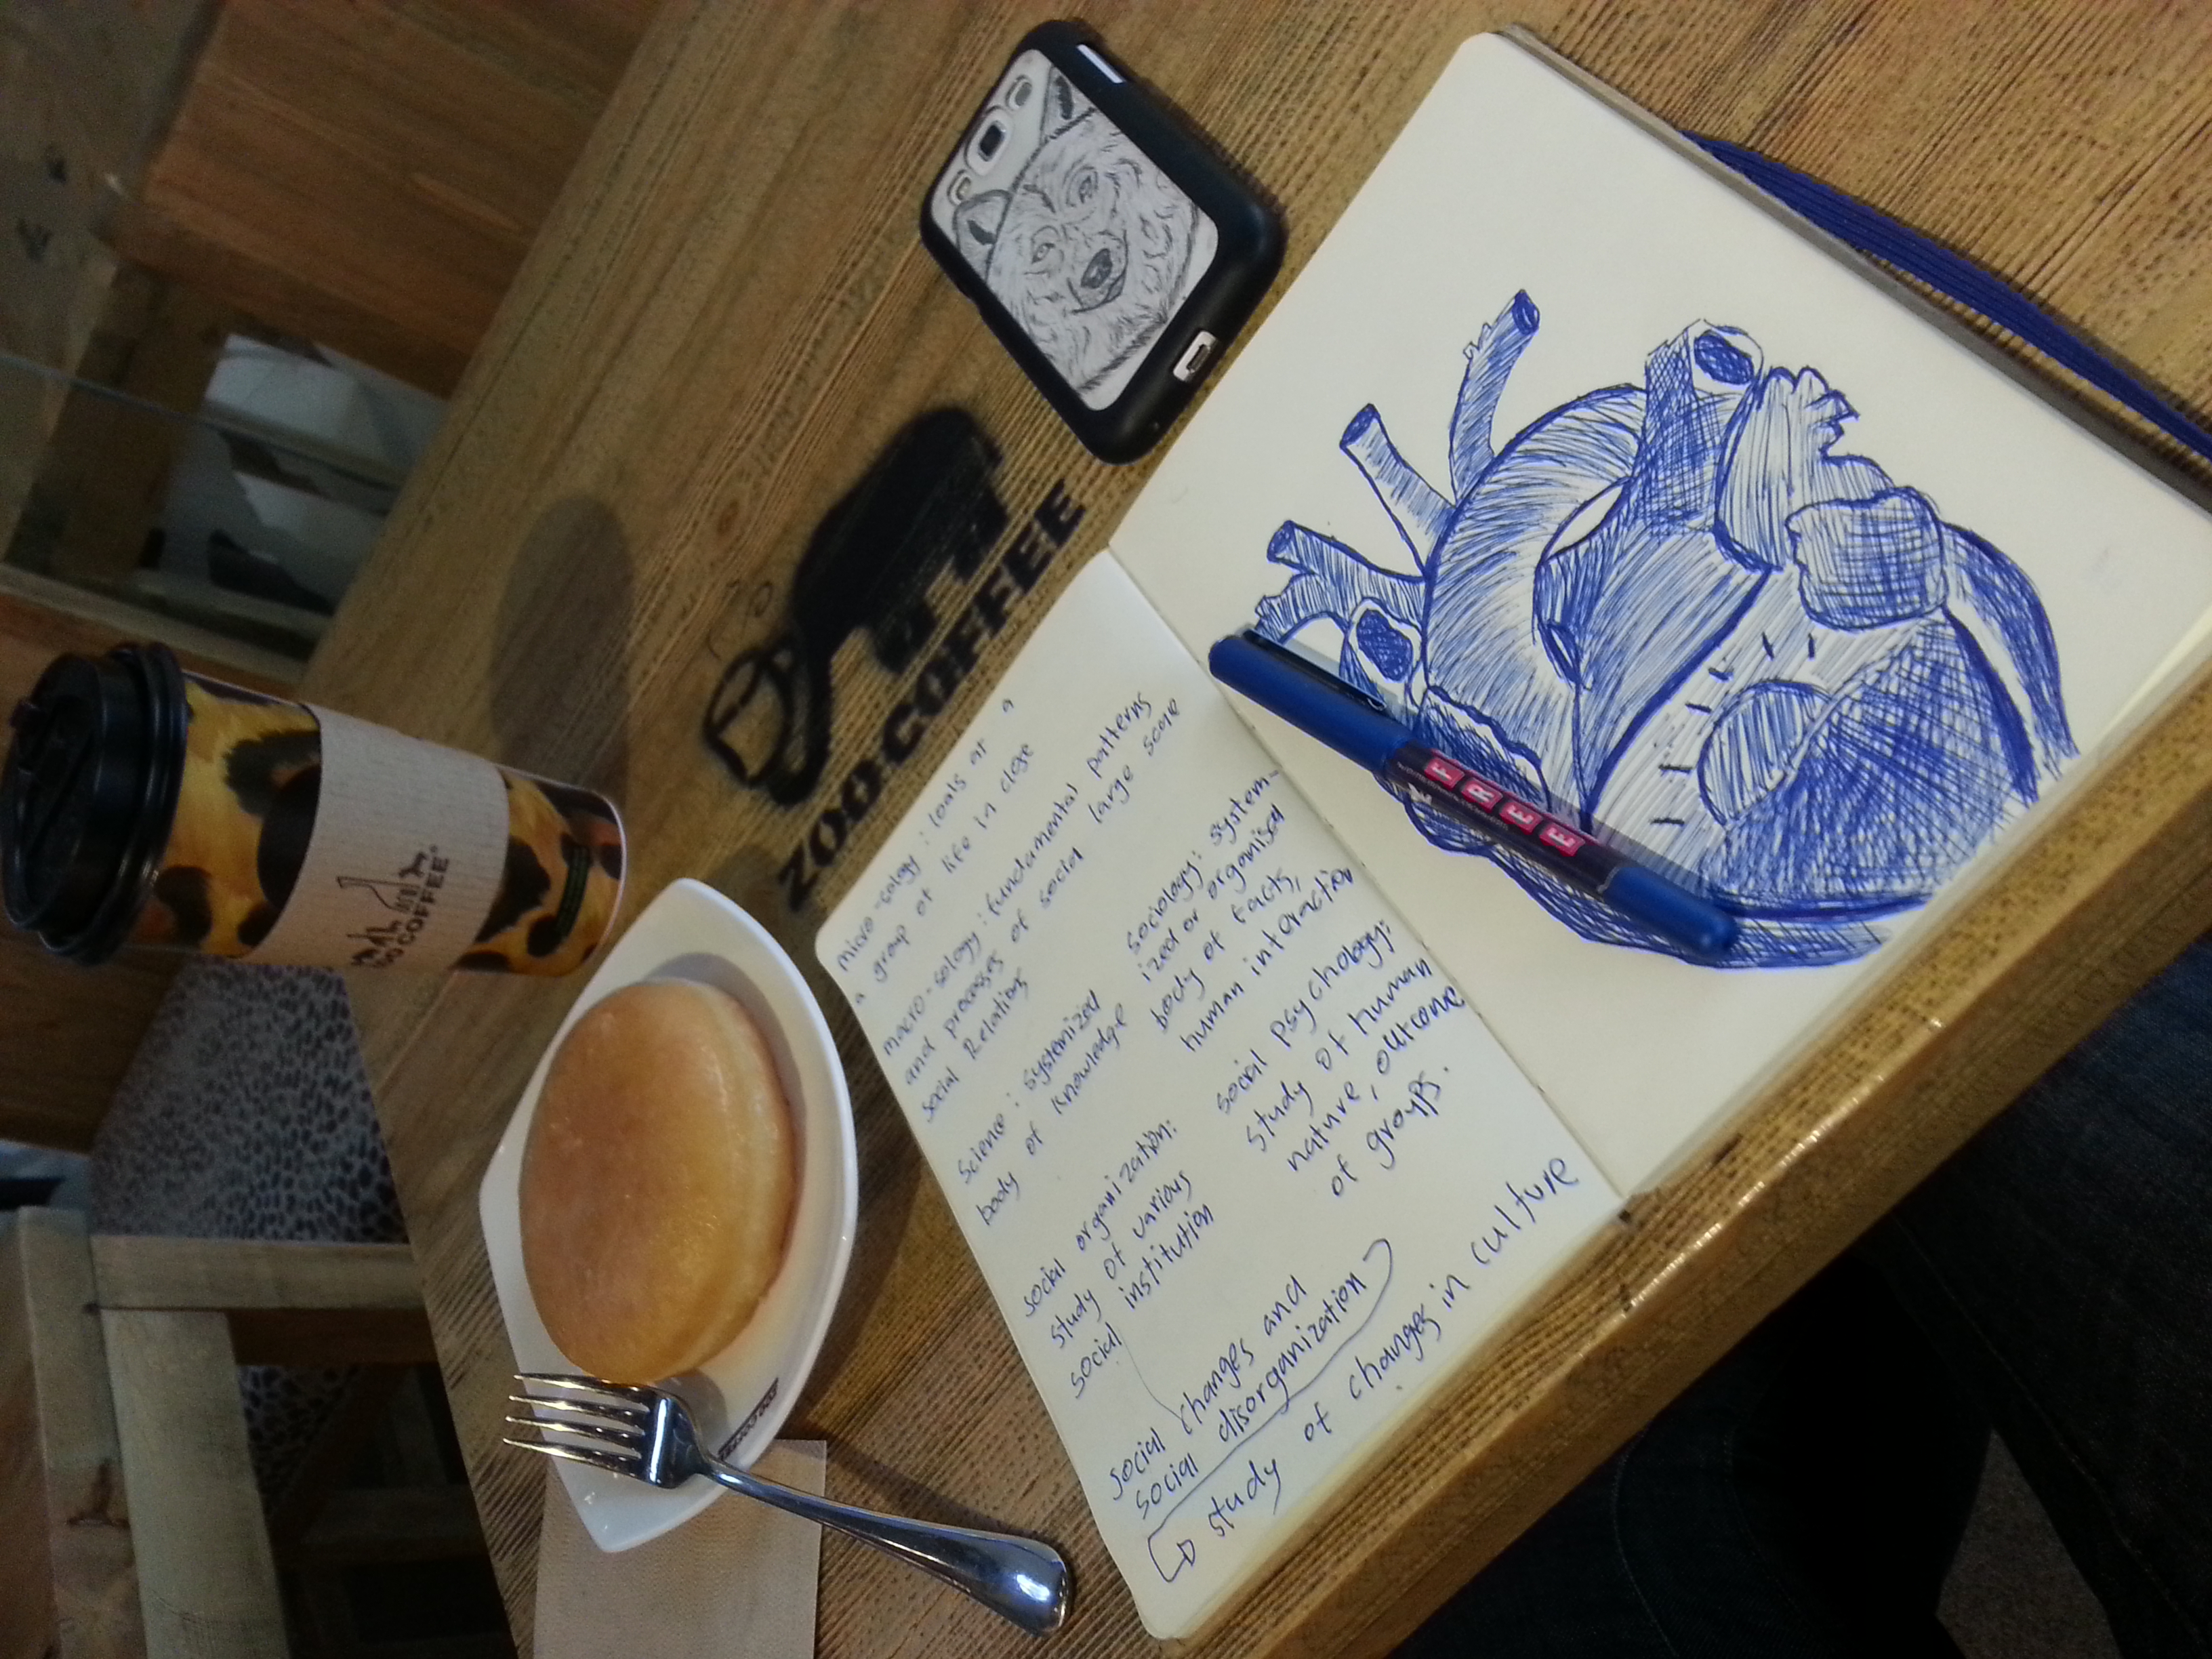 ZOO COFFEE
ZOO COFFEE
micro-sology : looks at a
a group of life in close
macro-sology : fundamental patterns
and processes of social large scale
social Relations
Science : systemized
body of knowledge
sociology: system-
ized or organised
body of facts,
human interaction
social organization:
study of various
social institution
social psychology:
study of human
nature, outcome
of groups.
social changes and
social disorganization
study of changes in culture
FREE